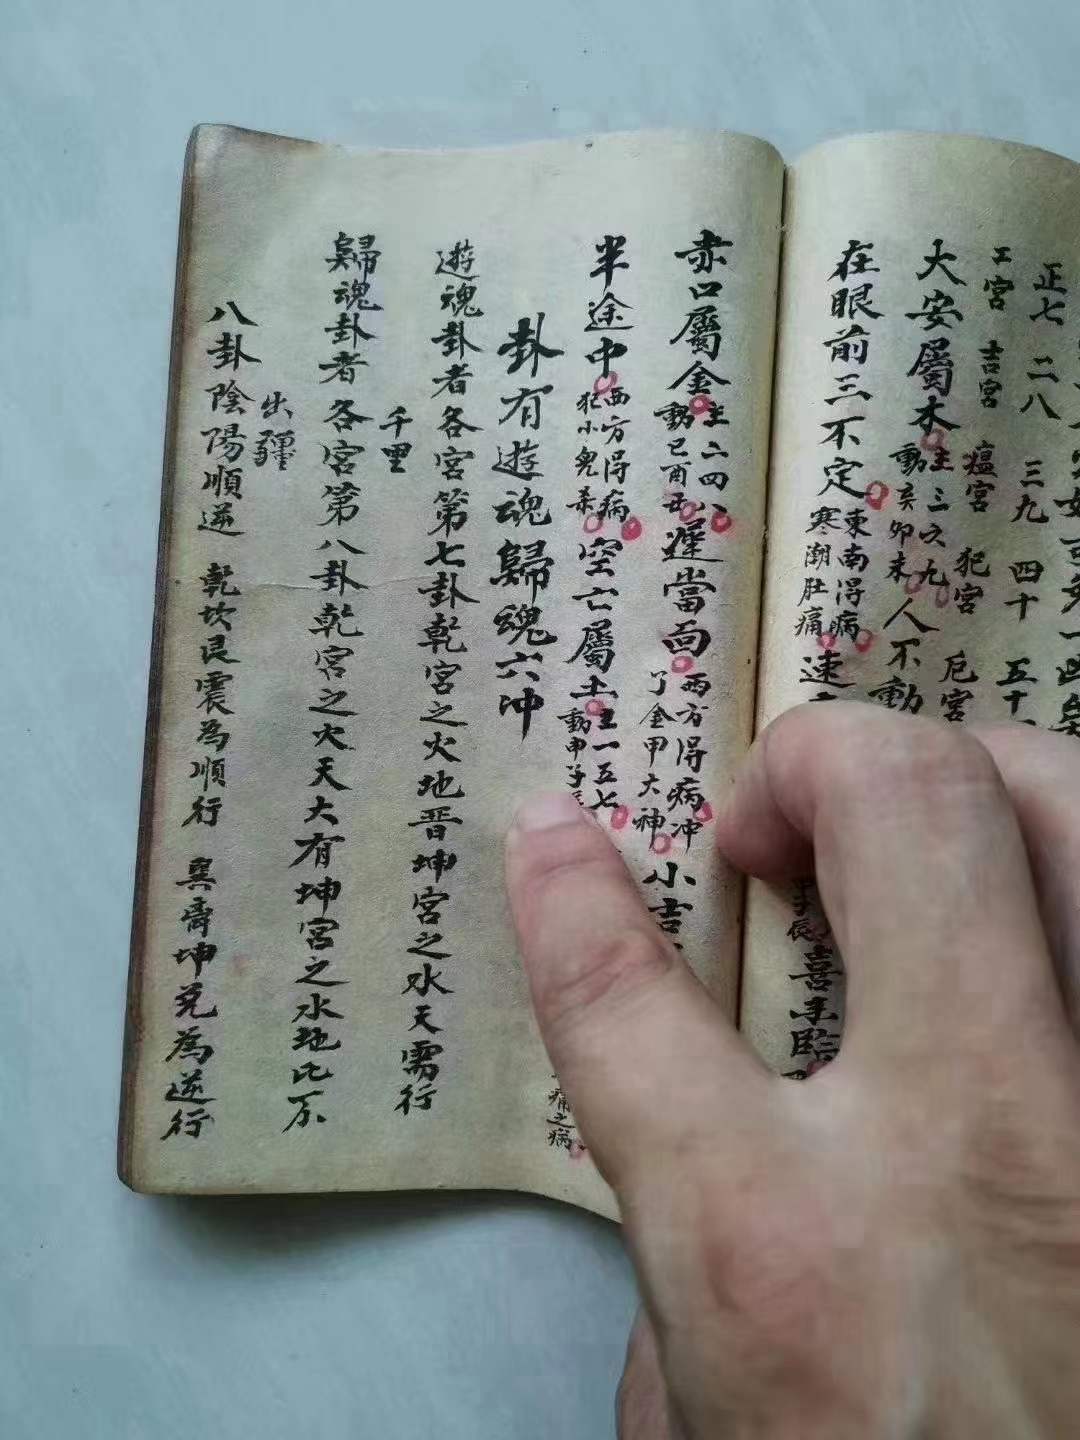 正七 二八 三九 四十 五十
工宮 吉宮 瘟宮 犯宮 厄宮
大安屬木
主三六九
動亥卯未
人不動
在眼前三不定
東南得病
寒潮肚痛
速
喜來臨
赤口屬金
主二四八
動巳酉丑
遲當面
西方得病冲
了金甲大神
小吉
半途中
西方得病
犯小鬼
空亡屬土
主一五七
動申子
痛之病
卦有遊魂歸魂六冲
遊魂卦者各宮第七卦乾宮之火地晋坤宮之水天需行
千里
歸魂卦者各宮第八卦乾宮之火天大有坤宮之水地比不
出疆
八卦陰陽順逆 乾坎艮震為順行 巽离坤兑為逆行